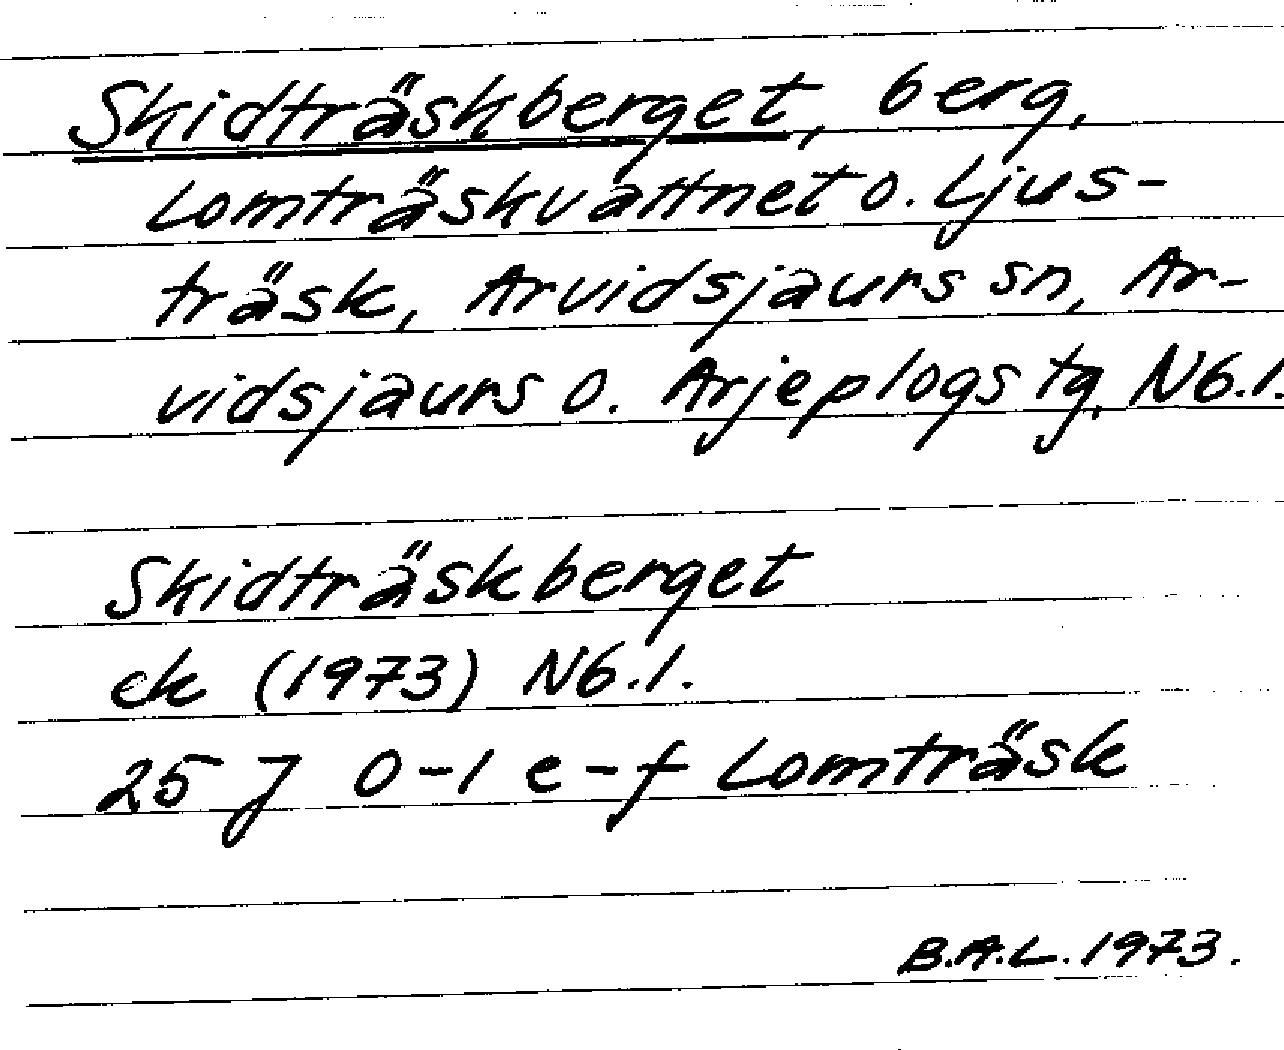 Skidträskberget, berg,
Lomträskvattnet o. Ljus-
träsk, Arvidsjaurs sn, Ar-
vidsjaurs o. Arjeplogs tg, N6.1.
Skidträskberget
ek (1973) N6.1.
25 J 0-1 e-f Lomträsk
B.A.L. 1973.